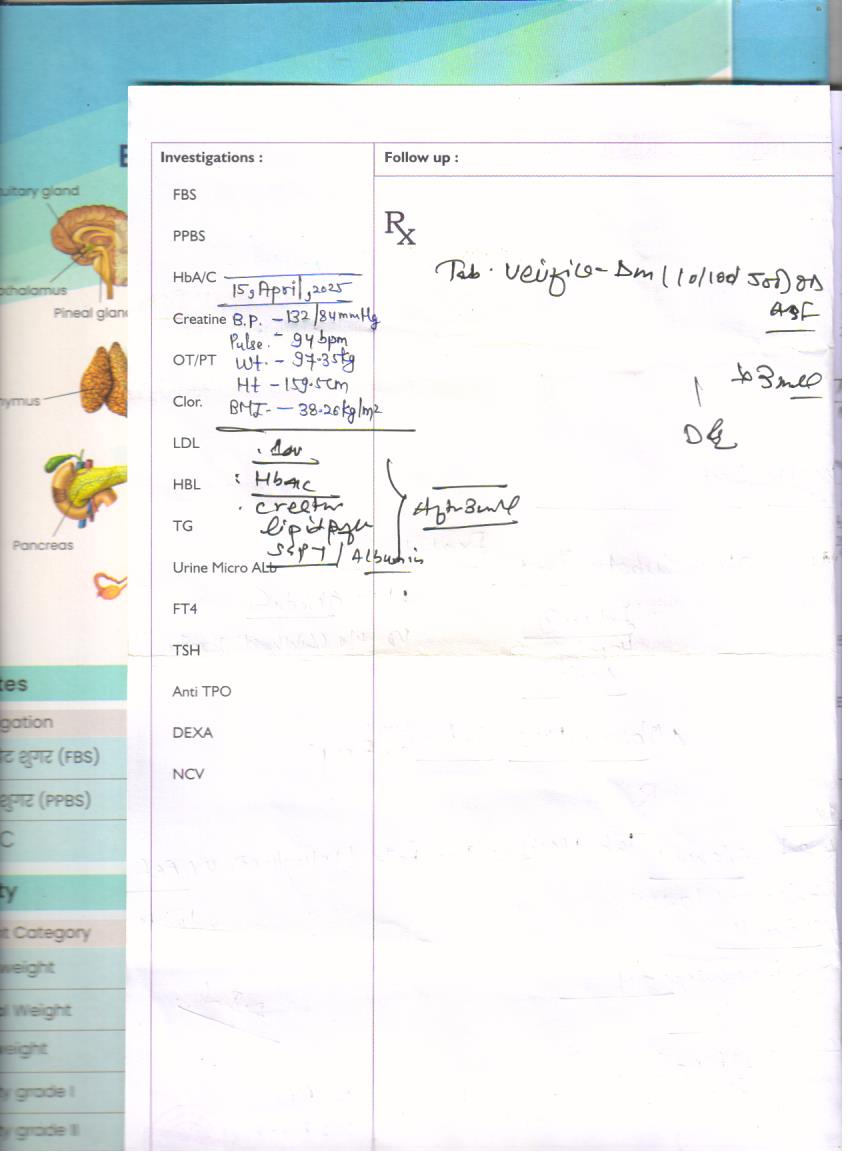 uitary gland
othalamus
Pineal gland
hymus
Pancreas
tes
gation
शुगर (FBS)
शुगर (PPBS)
C
ty
t Category
weight
l Weight
eight
ty grade I
ty grade II
Investigations :
FBS
PPBS
HbA/C
15, April, 2025
Creatine B.P. - 132/84mmHg
Pulse. - 94bpm
OT/PT Wt. - 97.35kg
Ht - 159.5cm
Clor. BMI. - 38.26kg/m2
LDL
HBL HbA1c
TG
SGPT / Albumin
Urine Micro ALb
FT4
TSH
Anti TPO
DEXA
NCV
Follow up :
Rx
Tab. Dm (10/100/500) OD